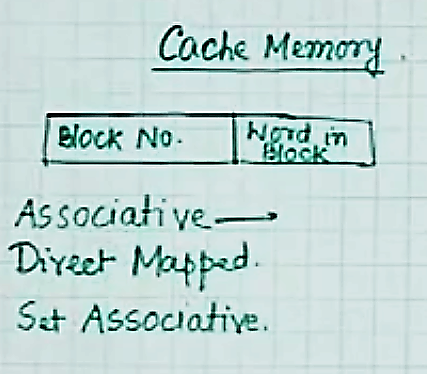 Cache Memory.
Block No. Word in Block
Associative →
Direct Mapped.
Set Associative.